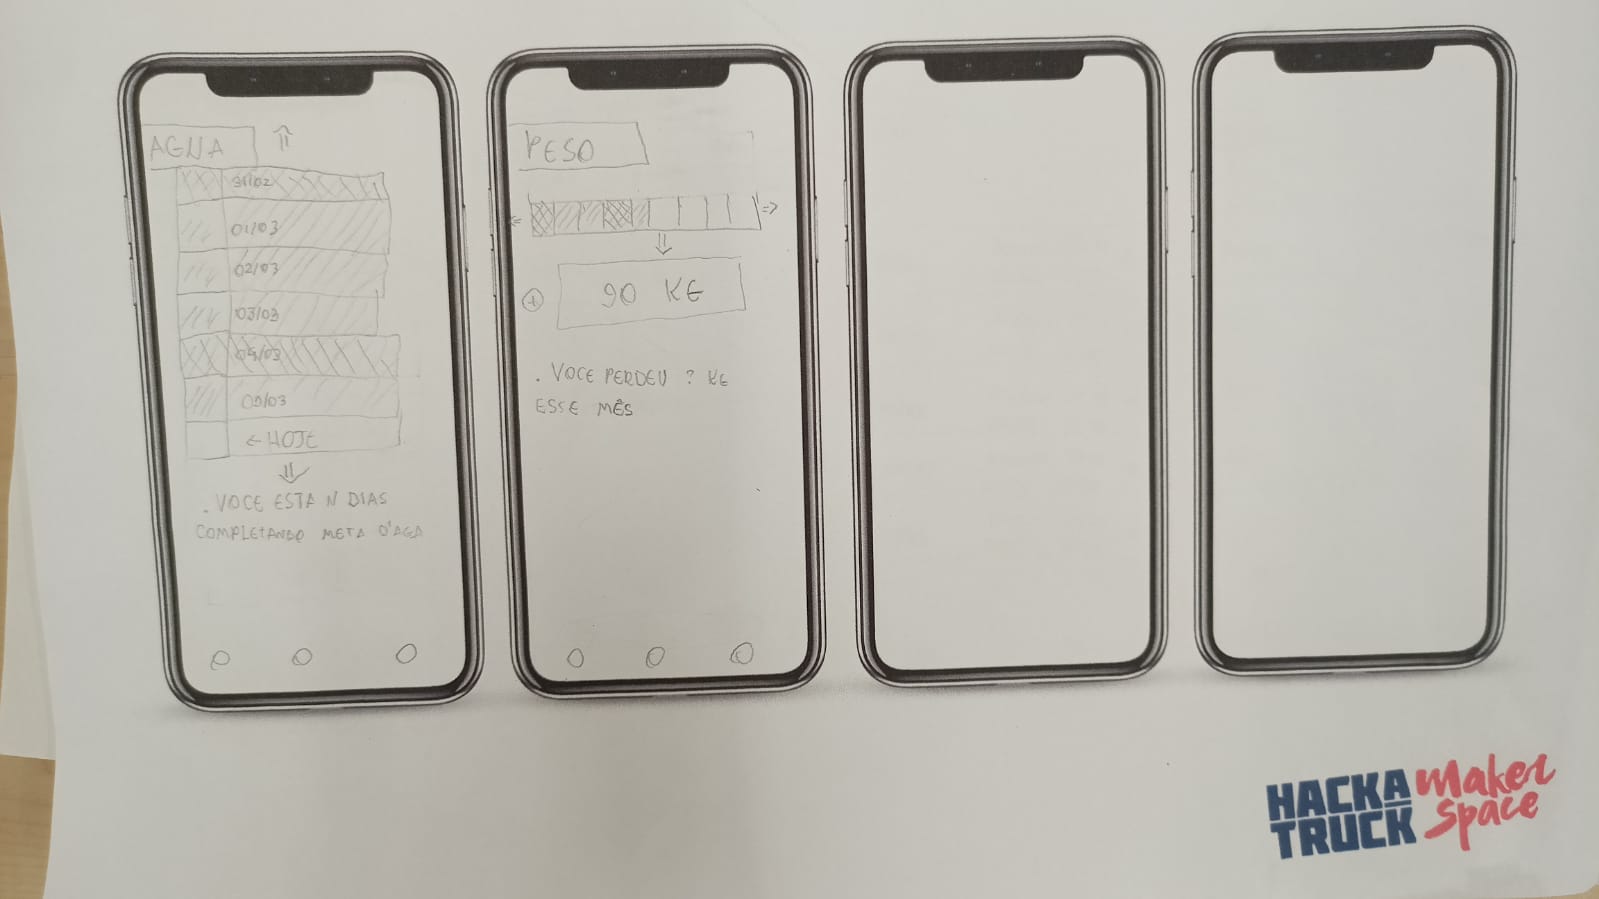 AGUA
31/02
01/03
02/03
03/03
04/03
05/03
← HOJE
. VOCE ESTA N DIAS
COMPLETANDO META D'AGA
PESO
90 KG
. VOCE PERDEU ? KG
ESSE MÊS
HACKA
TRUCK
maker
space